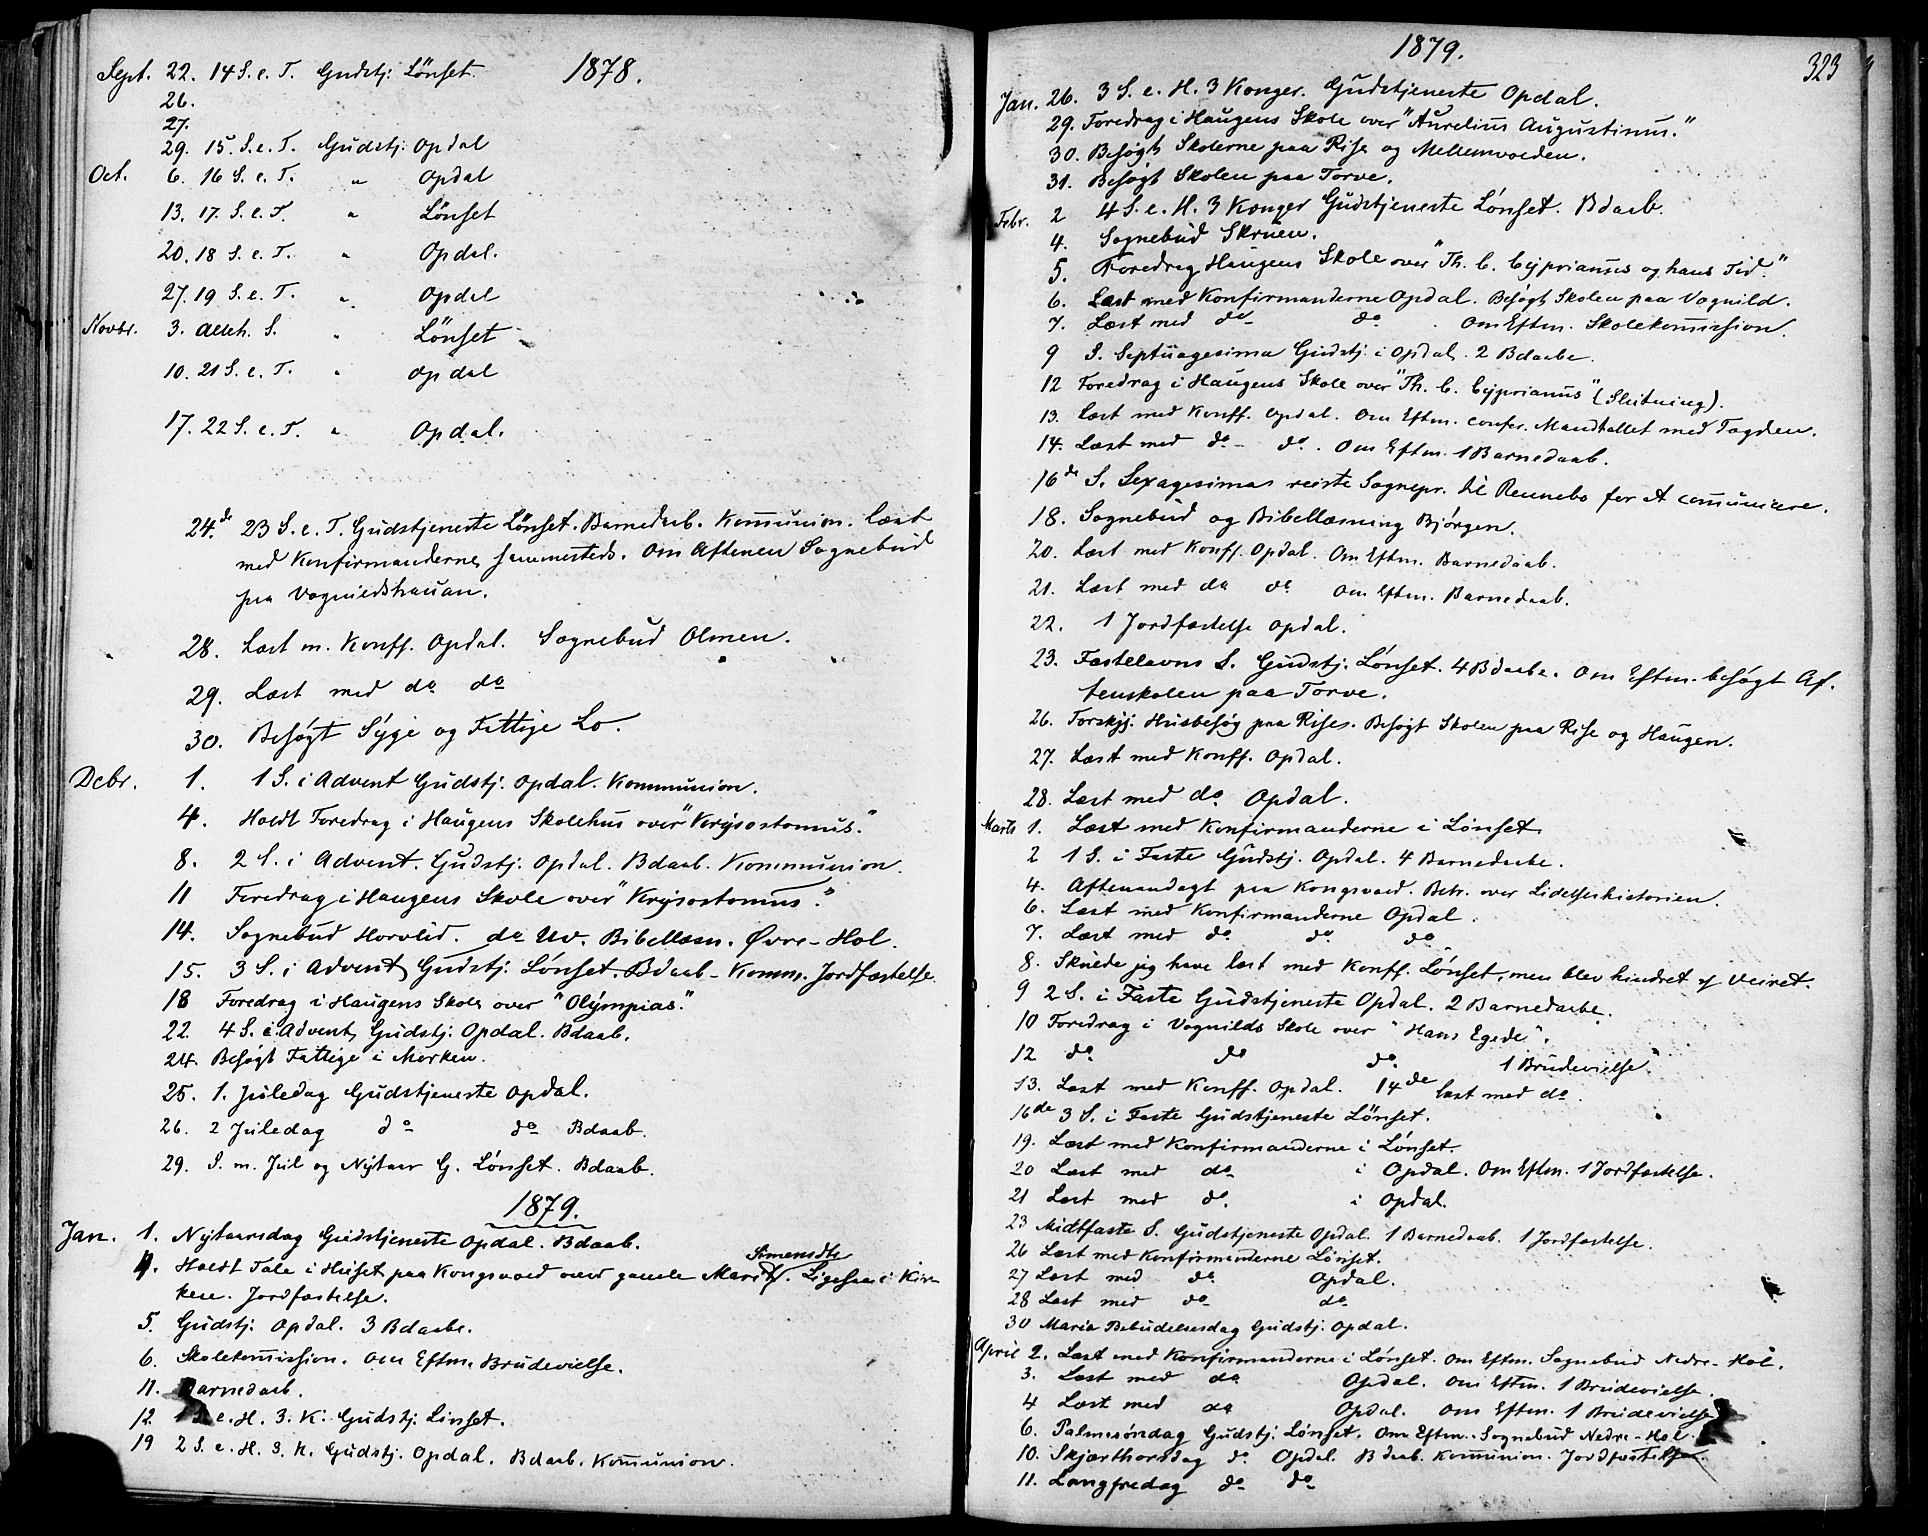 1878.
Sept. 22. 14 S. e. T. Gudstj: Lönset.
26.
27.
29. 15. S. e. T. Gudstj: Opdal
Oct. 6. 16 S. e. T. " Opdal
13. 17. S. e. T. " Lönset
20. 18 S. e. T. " Opdal.
27. 19 S. e. T. " Opdal
Novbr. 3. Alleh. S. " Lönset
10. 21 S. e. T. " Opdal
17. 22 S. e. T. " Opdal.
24de 23 S. e. T. Gudstjeneste Lönset. Barnedaab. Kommunion. Læst
med Konfirmanderne sammesteds. Om Aftenen Sognebud
paa Vognildshauan.
28. Læst m. Konff. Opdal. Sognebud Olmen.
29. Læst med do do
30. Besøgt Syge og Fattige Lo.
Decbr. 1. 1 S. i Advent Gudstj: Opdal. Kommunion.
4. Holdt Foredrag i Haugens Skolehus over "Krysostomus."
8. 2 S. i Advent. Gudstj: Opdal. Bdaab. Kommunion.
11 Foredrag i Haugens Skole over "Krysostomus."
14. Sognebud Horvlid. do Uv. Bibellæsn. Øvre-Hol.
15. 3 S. i Advent Gudstj: Lönset. Bdaab - Komm. Jordfæstelse
18 Foredrag i Haugens Skole over "Olympias."
22. 4 S. i Advent, Gudstj: Opdal. Bdaab.
24. Besøgt Fattige i Morken.
25. 1. Juledag Gudstjeneste Opdal.
26. 2 Juledag do do Bdaab.
29. S. m. Jul og Nytaar G. Lönset. Bdaab.
1879.
Jan. 1. Nytaarsdag Gudstjeneste Opdal. Bdaab.
4. Holdt Tale i Huset paa Kongsvold over gamle Marit Simensdtr. Ligesaa i Kir-
ken. Jordfæstelse.
5. Gudstj: Opdal. 3 Bdaabe.
6. Skolekommission. Om Eftm. Brudevielse.
11. Barnedaab.
12. e. H. 3. K: Gudstj: Lönset.
19 2 S. e. H. 3. K. Gudstj. Opdal. Bdaab. Kommunion.
1879.
323
Jan. 26. 3 S. e. H. 3 Konger. Gudstjeneste Opdal.
29. Foredrag i Haugens Skole over "Aurelius Augustinus."
30. Besøgt Skolerne paa Rise og Mellemvolden.
31. Besøgt Skolen paa Torve.
Febr. 2 4 S. e. H. 3 Konger Gudstjeneste Lönset. Bdaab.
4. Sognebud Skruen.
5. Foredrag Haugens Skole over "Th. C. Cyprianus og hans Tid."
6. Læst med Konfirmanderne Opdal. Besøgt Skolen paa Vognild.
7. Læst med do do. Om Eftm. Skolekommission.
9 S. Septuagesima Gudstj: i Opdal. 2 Bdaabe.
12 Foredrag i Haugens Skole over "Th. C. Cyprianus" (Slutning).
13. Læst med Konff. Opdal. Om Eftm. confer. Mandtallet med Fogden.
14. Læst med do - do. Om Eftm. 1 Barnedaab.
16de S. Sexagesimas reiste Sognepr. til Rennebo for At communicere.
18. Sognebud og Bibellæsning Bjørgen.
20. Læst med Konff. Opdal. Om Eftm. Barnedaab.
21. Læst med do do Om Eftm. Barnedaab.
22. 1 Jordfæstelse Opdal.
23. Fastelavns S. Gudstj: Lönset. 4 Bdaabe. Om Eftm. besøgt Af-
tenskolen paa Torve.
26. Husbesøg paa Rises. Besøgt Skolen paa Rise og Haugen.
27. Læst med Konff. Opdal.
28. Læst med do Opdal.
Marts 1. Læst med Konfirmanderne i Lönset.
2 1 S. i Faste Gudstj. Opdal. 4 Barnedaabe.
4. Aftenandagt paa Kongsvold. Betr. over Lidelseshistorien.
6. Læst med Konfirmanderne Opdal.
7. Læst med do do do
8. Skulde jeg have læst med Konff. Lönset, men blev hindret af Veiret.
9 2 S. i Faste Gudstjeneste Opdal. 2 Barnedaabe.
10 Foredrag i Vognilds Skole over "Hans Egede".
12 do do do. 1 Brudevielse.
13. Læst med Konff. Opdal. 14de læst med do.
16de 3 S. i Faste Gudstjeneste Lönset.
19. Læst med Konfirmanderne i Lönset.
20 Læst med do i Opdal. Om Eftm. 1 Jordfæstelse.
21 Læst med do. i Opdal.
23 Midtfaste S. Gudstjeneste Opdal. 1 Barnedaab. 1 Jordfæstelse.
26 Læst med Konfirmanderne Lönset.
27 Læst med do Opdal.
28 Læst med do do
30 Maria Bebudelsesdag Gudstj: Opdal.
April 2. Læst med Konfirmanderne i Lönset. Om Eftm. Sognebud Nedre-Hol.
3. Læst med do Opdal. Om Eftm. 1 Brudevielse.
4 Læst med do Opdal. Om Eftm. 1 Brudevielse
6. Palmesöndag Gudstj: Lönset. Om Eftm. Sognebud Nedre-Hol.
10. Skjærthorsdag do Opdal. Bdaab. Kommunion. Jordfæstelse.
11. Langfredag do do